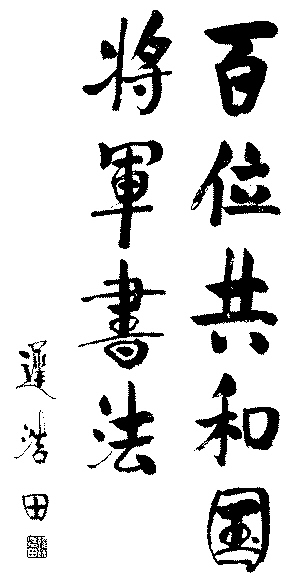 百位共和国
將軍書法
遲浩田